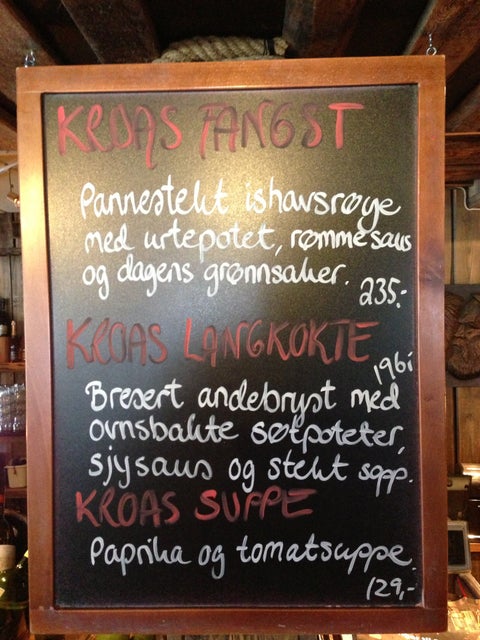 KROAS FANGST
Pannestekt ishavsrøye
med urtepotet, rømmesaus
og dagens grønnsaker.
235:-
KROAS LANGKOKTE
196:
Bresert andebryst med
ovnsbakte søtpoteter,
sjysaus og stekt sopp.
KROAS SUPPE
Paprika og tomatsuppe.
129,-